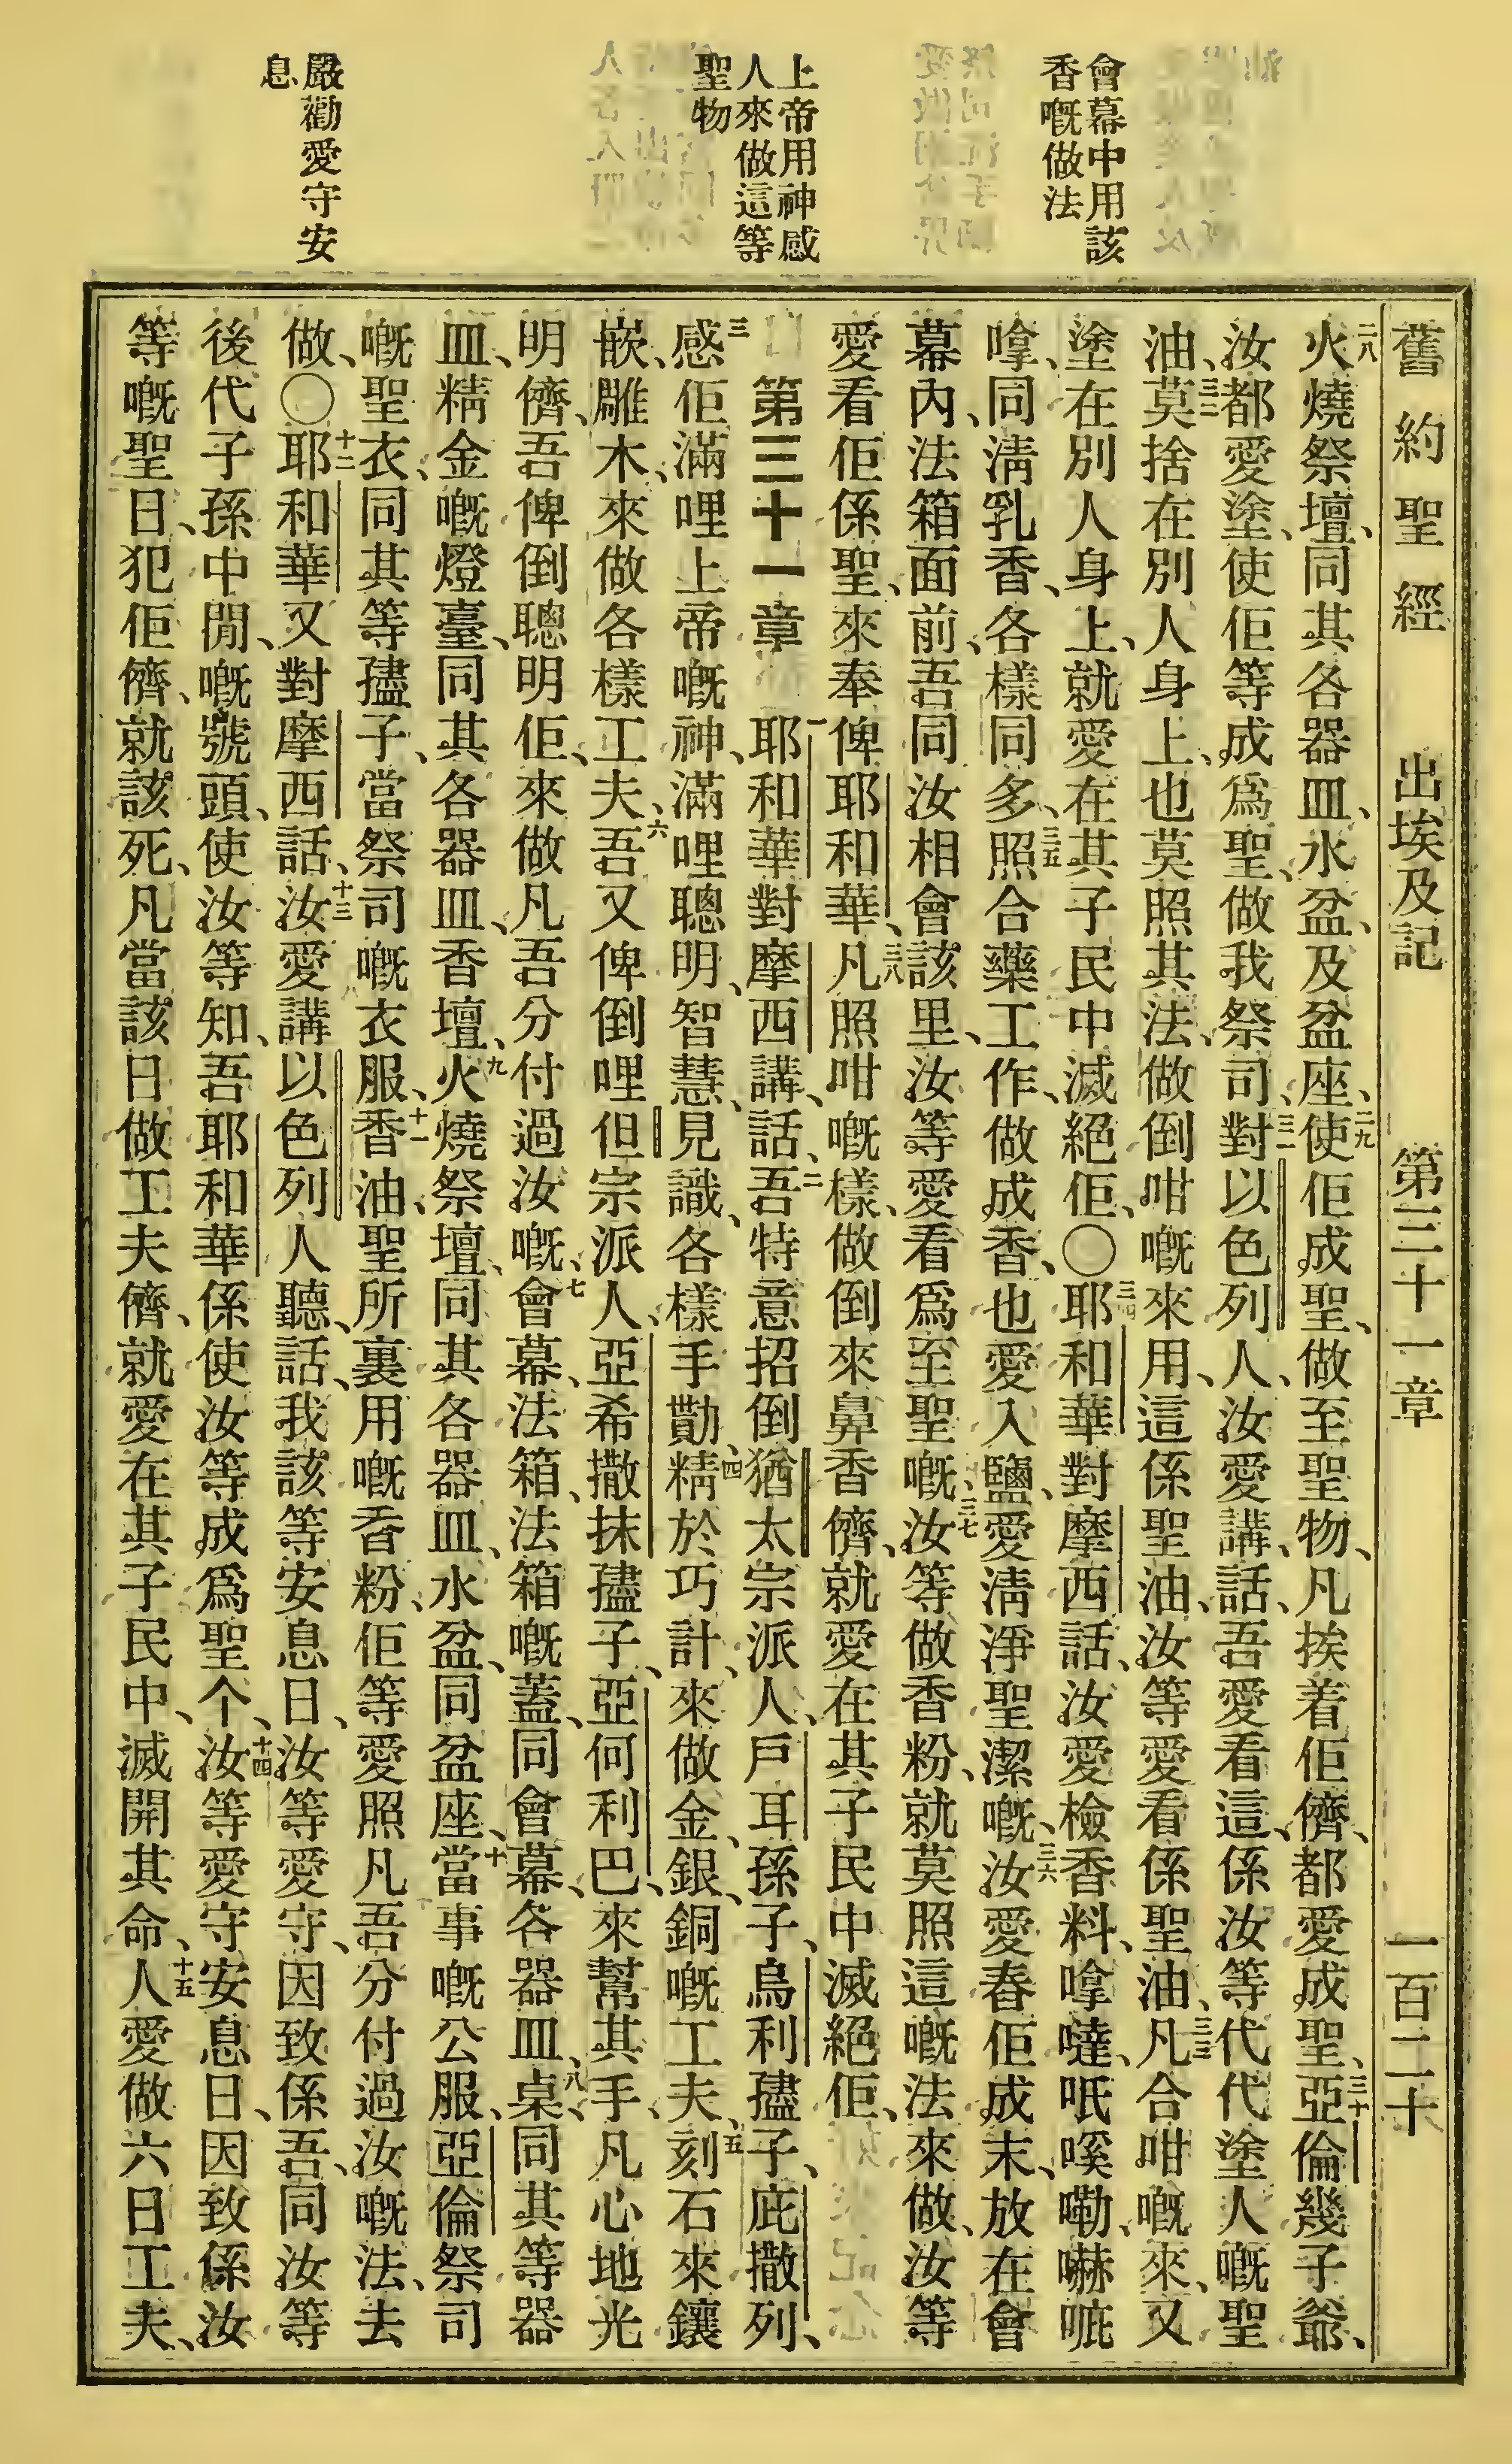 會幕中用該
香嘅做法
上帝用神感
人來做這等
聖物
嚴勸愛守安
息
舊約聖經 出埃及記 第三十一章 一百二十
二八火燒祭壇、同其各器皿、水盆、及盆座、二九使佢成聖、做至聖物、凡挨着佢儕、都愛成聖、三十亞倫幾子爺、
汝都愛塗、使佢等成爲聖、做我祭司、三一對以色列人、汝愛講話、吾愛看這、係汝等代代塗人嘅聖
油、三二莫捨在別人身上、也莫照其法、做倒咁嘅來用、這係聖油、汝等愛看係聖油、三三凡合咁嘅來、又
塗在別人身上、就愛在其子民中滅絕佢、〇三四耶和華對摩西話、汝愛檢香料、嗱噠、呡嗘嘞、嚇𠵽
嗱、同淸乳香、各樣同多、三五照合藥工作、做成香、也愛入鹽、愛淸淨聖潔嘅、三六汝愛舂佢成末、放在會
幕內、法箱面前、吾同汝相會該里、汝等愛看爲至聖嘅、三七汝等做香粉、就莫照這嘅法來做、汝等
愛看佢係聖、來奉俾耶和華、三八凡照咁嘅樣、做倒來鼻香儕、就愛在其子民中滅絕佢、
第三十一章 一耶和華對摩西講話、二吾特意招倒猶太宗派人、戶耳孫子、烏利孻子、庇撒列、
三感佢滿哩上帝嘅神、滿哩聰明、智慧、見識、各樣手勩、四精於巧計、來做金、銀、銅嘅工夫、五刻石來鑲
嵌、雕木、來做各樣工夫、六吾又俾倒哩但宗派人、亞希撒抹孻子、亞何利巴、來幫其手、凡心地光
明儕、吾俾倒聰明佢、來做凡吾分付過汝嘅、七會幕、法箱、法箱嘅蓋、同會幕、各器皿、八桌、同其等器
皿、精金嘅燈臺、同其各器皿、香壇、九火燒祭壇、同其各器皿、水盆、同盆座、十當事嘅公服、亞倫祭司
嘅聖衣、同其等孻子、當祭司嘅衣服、十一香油、聖所裏用嘅香粉、佢等愛照凡吾分付過汝嘅法、去
做、〇十二耶和華又對摩西話、十三汝愛講以色列人聽、話、我該等安息日、汝等愛守、因致係吾、同汝等
後代子孫中閒、嘅號頭、使汝等知、吾耶和華係使汝等成爲聖个、十四汝等愛守安息日、因致係汝
等嘅聖日、犯佢儕、就該死、凡當該日做工夫儕、就愛在其子民中、滅開其命、十五人愛做六日工夫、